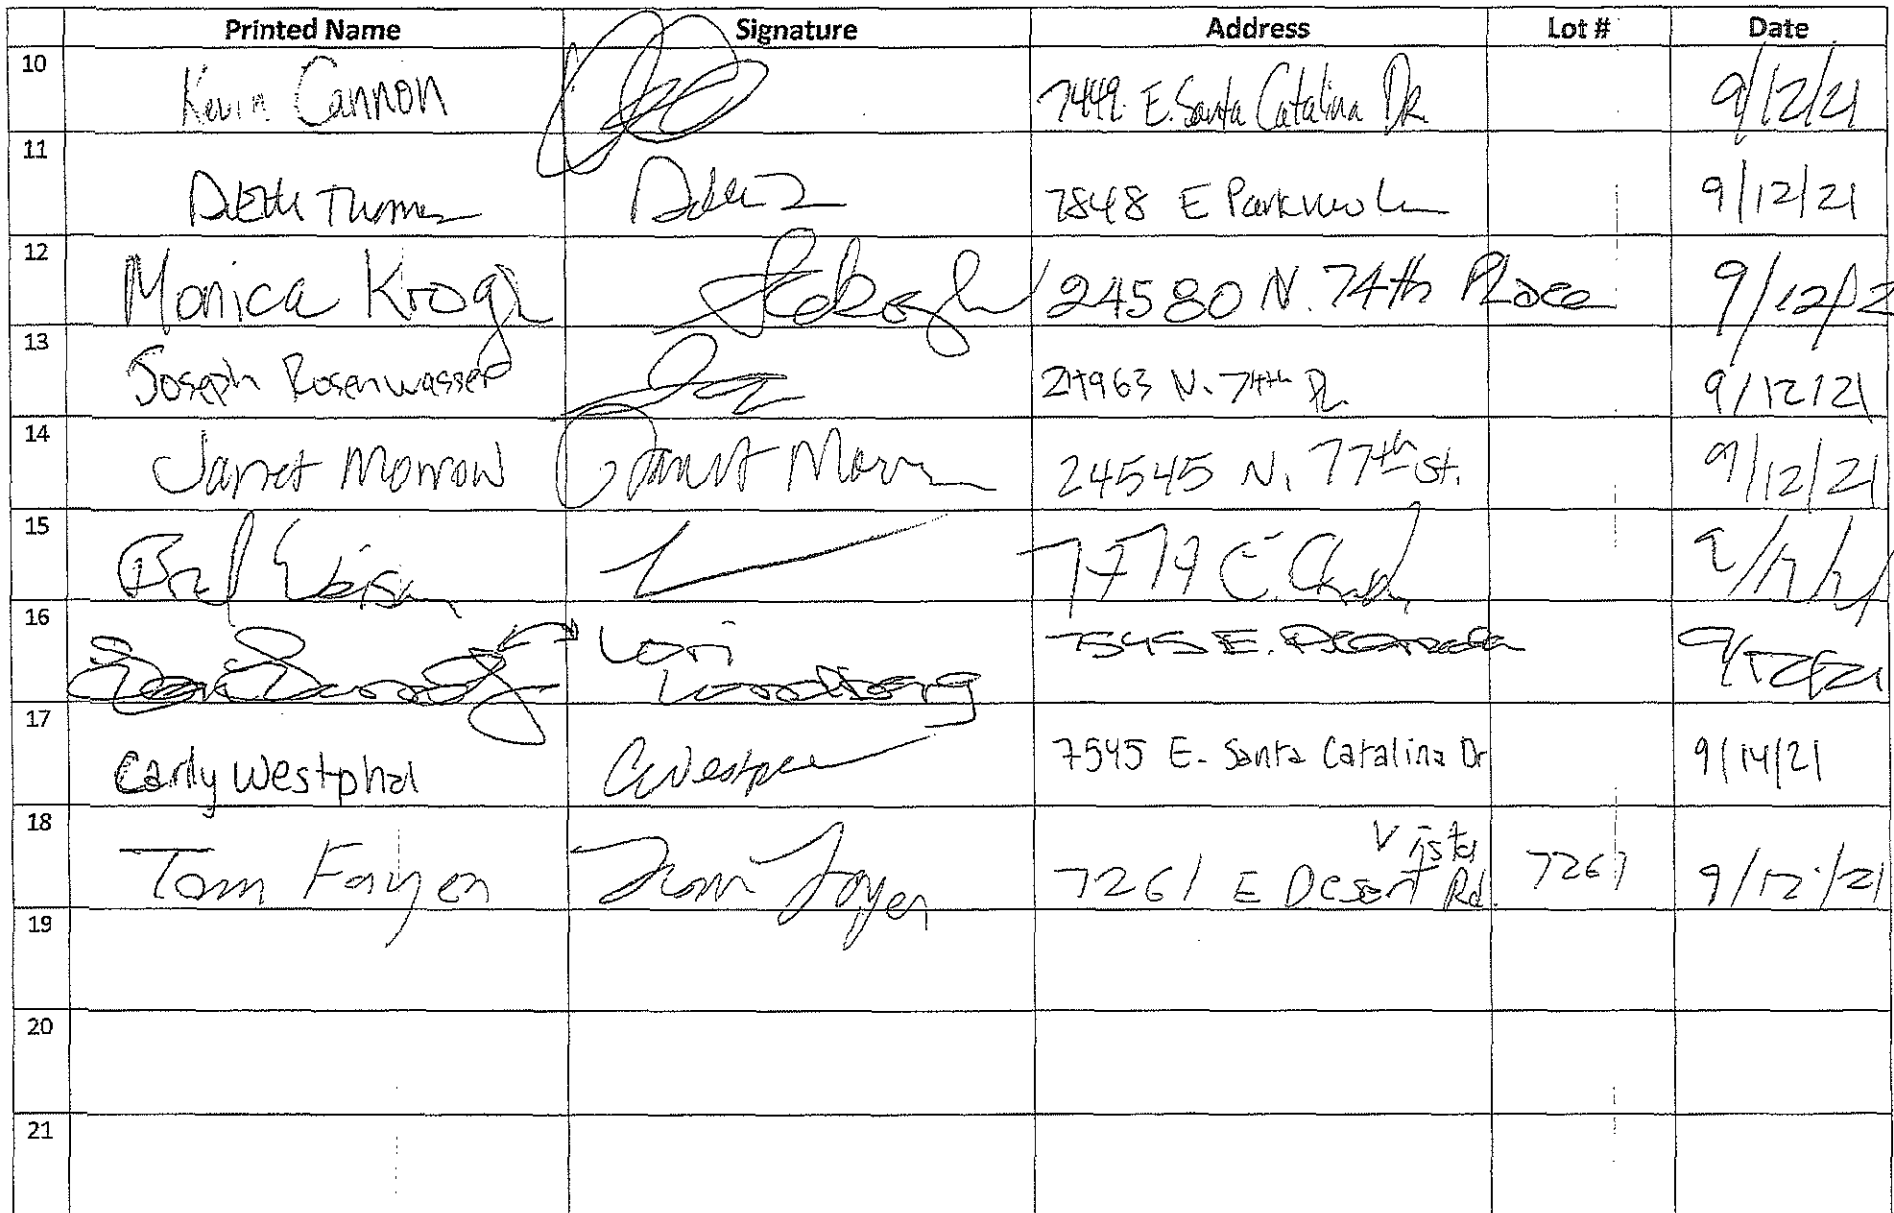 Printed Name Signature Address Lot # Date
10 Kevin Cannon 7449 E. Santa Catalina DR. 9/12/21
11 7848 E 9/12/21
12 Monica Krogh 24580 N. 74th Place 9/12/2
13 Joseph Rosenwasser 24963 N. 74th PL. 9/12/21
14 Janet Morrow Janet Morrow 24545 N. 77th St. 9/12/21
15 E.
16 Lori 7545 E. 9/12/21
17 Carly Westphal CWestphal 7545 E. Santa Catalina Dr 9/14/21
18 Tom Fayen Tom Fayen 7261 E Desert Vista Rd. 7261 9/12/21
19
20
21